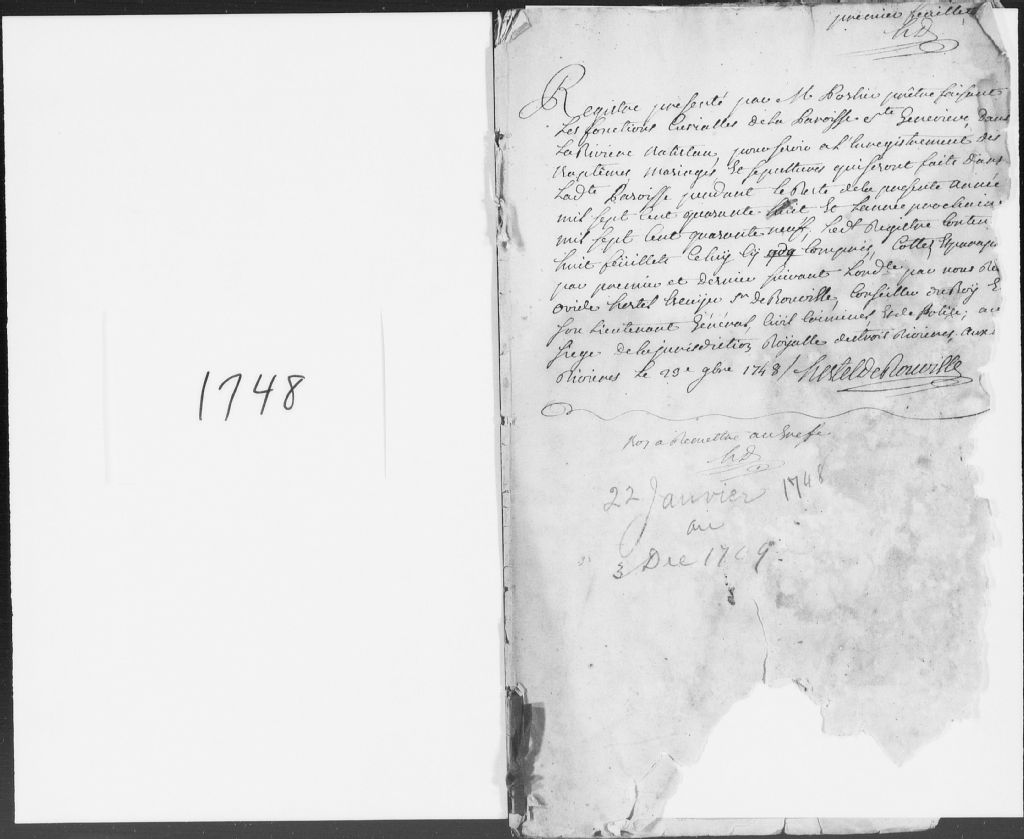 1748
premier feuillet
hd
Registre presenté par M. Poslin prêtre faisant
Les fonctions Curialles de la Paroisse Ste Genevieve, dans
La Riviere Batiscan, pour servir a L'Enregistrement des
Baptêmes, mariages Et sepultures qui seront faits dans
Ladte Paroisse pendant le Reste de la presente année
mil sept Cent quarante huit Et L'année prochaine
mil sept Cent quarante neuf, Ledt Registre Conten
huit feüillets Celuy Cy Compris, Cottez Et paraphé
par premier et dernier suivant Lordce par nous Re
ovide hertel Ecuyer Sr de Rouville, Conseiller du Roy E
son Lieutenant Général, Civil Criminel Et de Police, au
siege de la jurisdiction Royalle des trois Rivieres, aux
Rivieres le 23e 9bre 1748 / hertel de Rouville
Pour a Remettre au Greffe
hd
22 Janvier 1748
au
3 Dec 1749